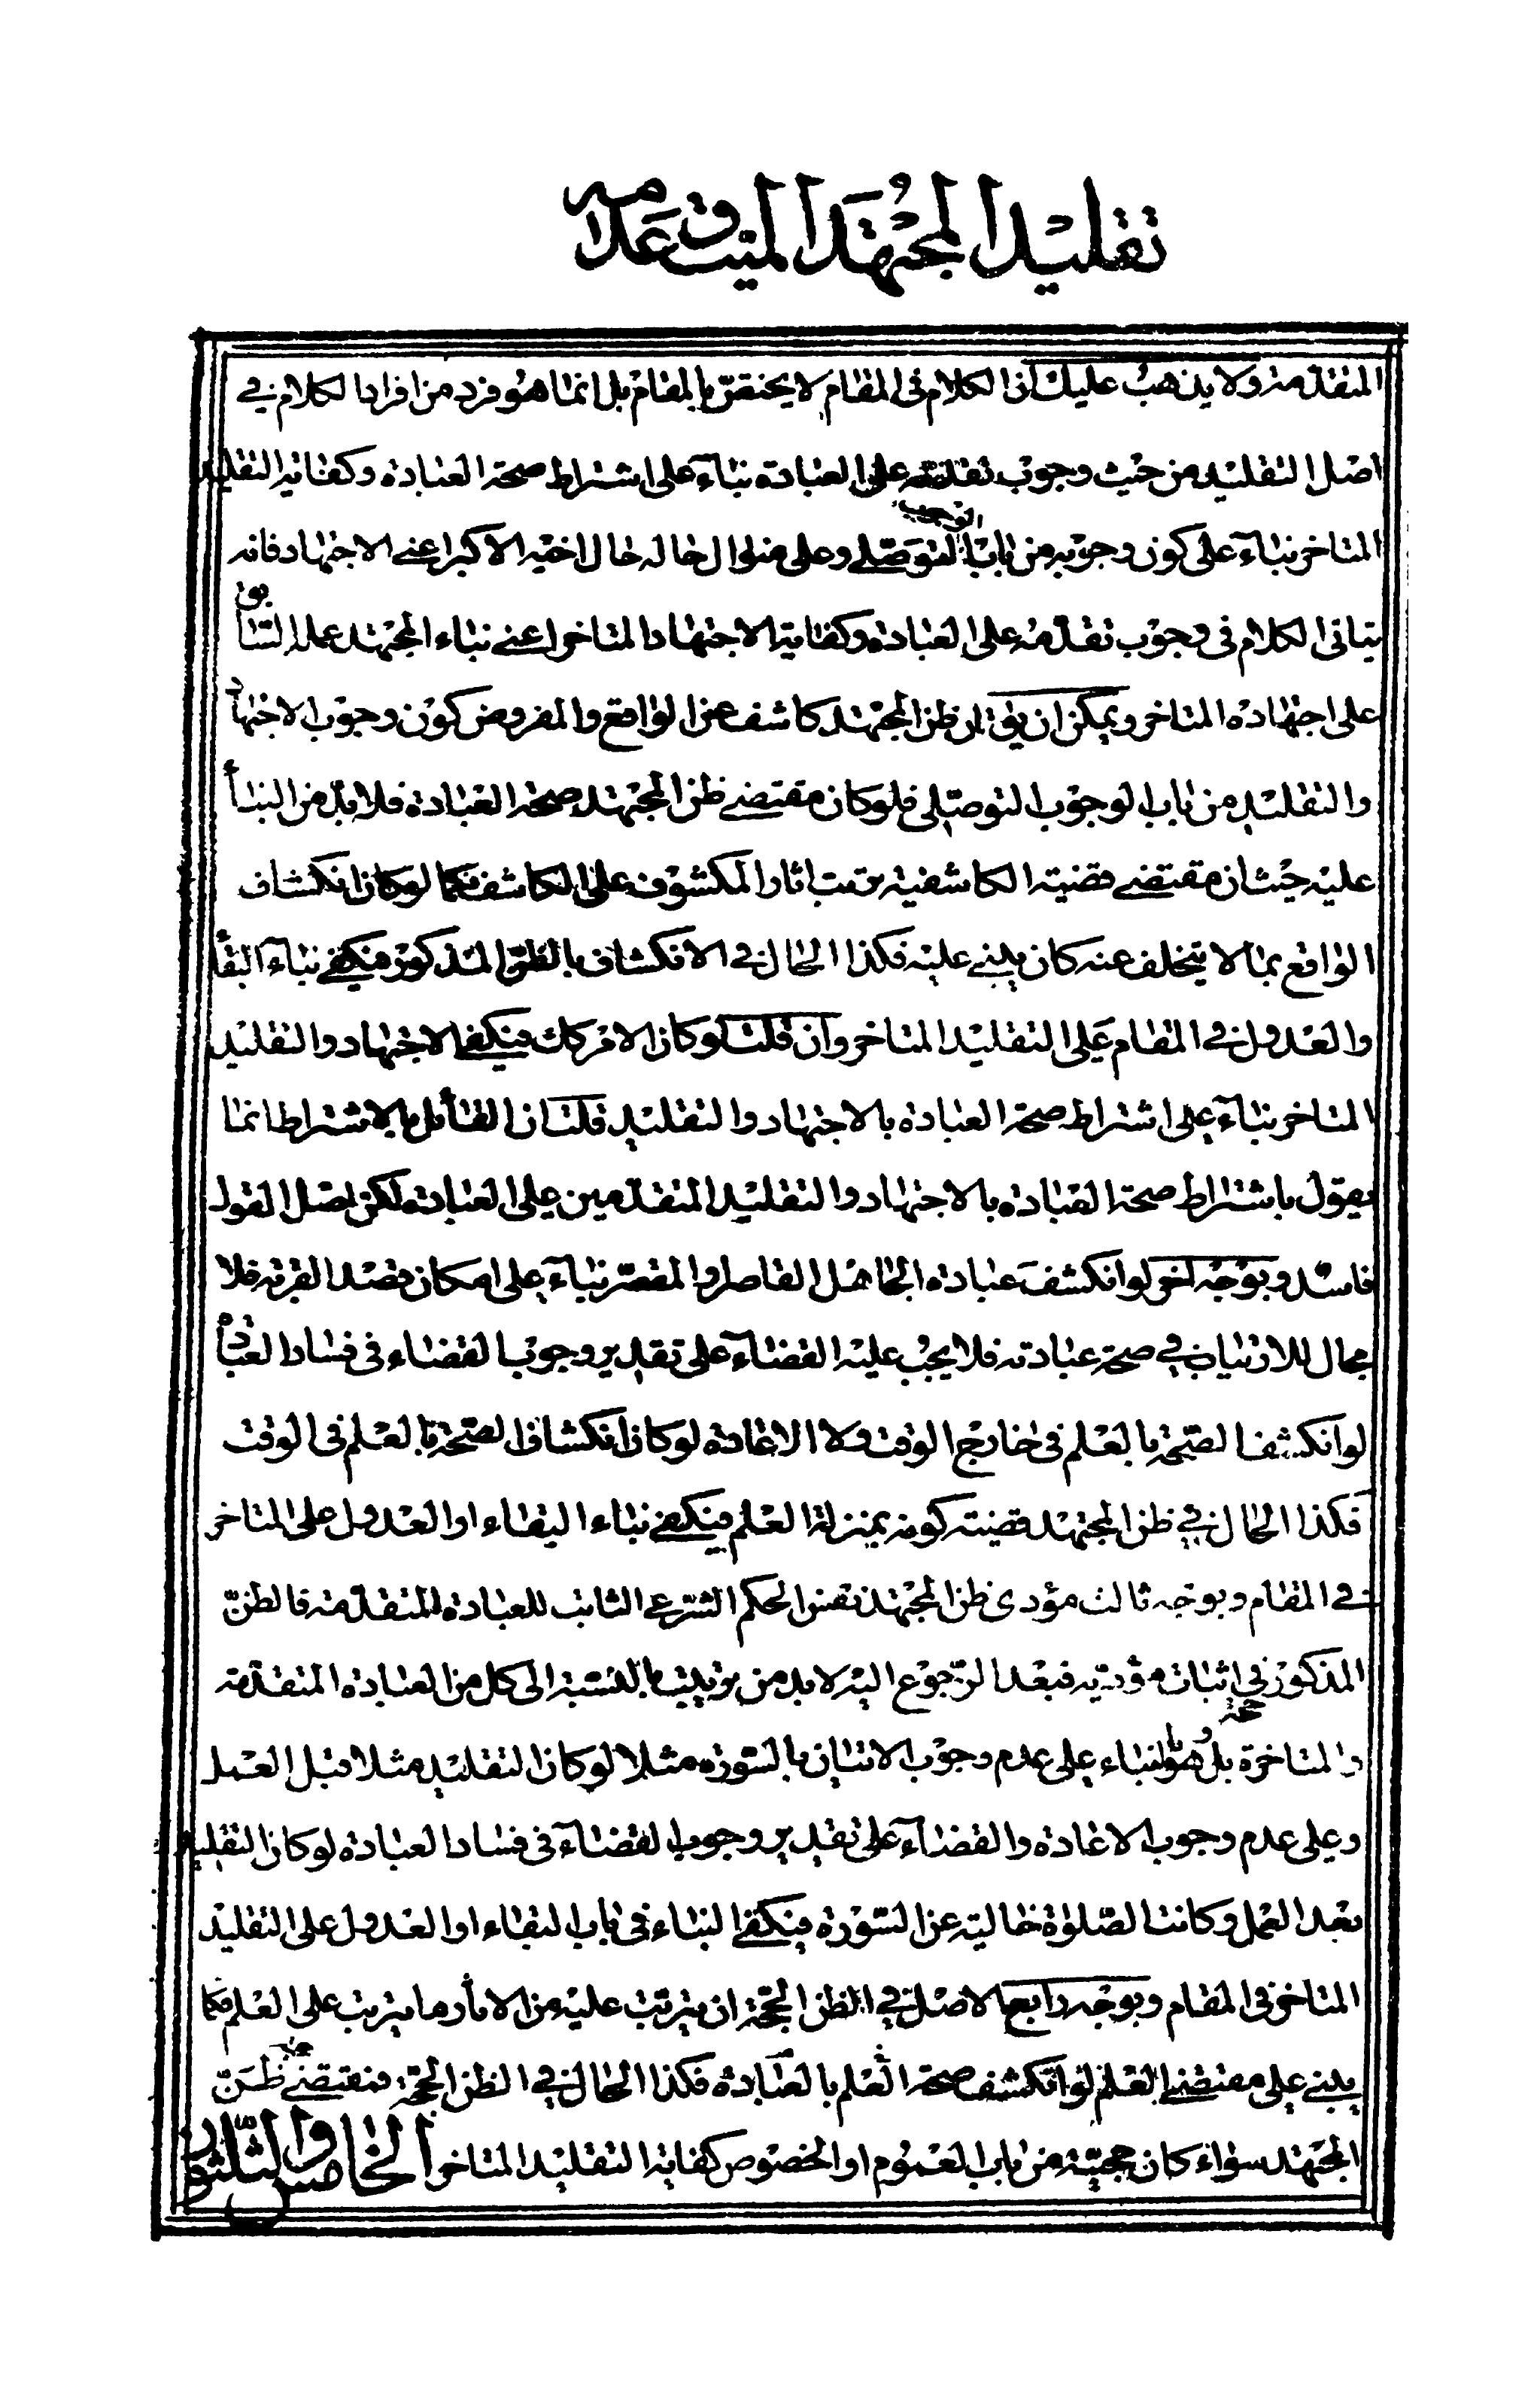 تقليد المجتهد الميت و عدمه
المتقدمة ولا يذهب عليك ان الكلام فى المقام لا يختص بالمقام بل انما هو فرد من افراد الكلام في
اصل التقليد من حيث وجوب تقدمه على العبادة بناء على اشتراط صحة العبادة وكفاية التقليد
المتاخر بناء على كون وجوبه من باب الوجوب التوصلي وعلى منوال حاله حال اخيه الاكبر اعني الاجتهاد فانه
يتاتى الكلام فى وجوب تقدمه على العبادة وكفاية الاجتهاد المتاخر اعني بناء المجتهد عمله السابق
على اجتهاده المتاخر ويمكن ان يق ان ظن المجتهد كاشف عن الواقع والمفروض كون وجوب الاجتهاد
والتقليد من باب الوجوب التوصلي فلو كان مقتضي ظن المجتهد صحة العبادة فلا بد من البناء
عليه حيث ان مقتضي قضية الكاشفية ترتب اثار المكشوف على الكاشف فكما لو كان انكشاف
الواقع بما لا يتخلف عنه كان يبني عليه فكذا الحال في الانكشاف بالظن المذكور فيكفي بناء البقاء
والعدول في المقام على التقليد المتاخر وان قلت لو كان الامر كك فيكفي الاجتهاد والتقليد
المتاخر بناء على اشتراط صحة العبادة بالاجتهاد والتقليد قلت ان القائل بالاشتراط انما
يقول باشتراط صحة العبادة بالاجتهاد والتقليد المتقدمين على العبادة لكن اصل القول
فاسد وبوجه اخر لو انكشف عبادة الجاهل القاصر والمقصر بناء على امكان قصد القربة فلا
مجال للارتياب في صحة عبادته فلا يجب عليه القضاء على تقدير وجوب القضاء فى فساد العبادة
لو انكشف الصحة بالعلم فى خارج الوقت ولا الاعادة لو كان انكشاف الصحة بالعلم فى الوقت
فكذا الحال في ظن المجتهد قضية كونه بمنزلة العلم فيكفي بناء البقاء او العدول على المتاخر
في المقام وبوجه ثالث مؤدى ظن المجتهد نفس الحكم الشرعي الثابت للعبادة المتقدمة فالظن
المذكور في اثبات مؤديه فبعد الرجوع اليه لا بد من ترتيب بالنسبة الى كل من العبادة المتقدمة
والمتاخرة بل هو البناء على عدم وجوب الاتيان بالسورة مثلا لو كان التقليد مثلا قبل العمل
وعلى عدم وجوب الاعادة والقضاء على تقدير وجوب القضاء فى فساد العبادة لو كان التقليد
بعد العمل وكانت الصلوة خالية عن السورة فيكفي البناء فى باب البقاء او العدول على التقليد
المتاخر فى المقام وبوجه رابع الاصل في الظن الحجة ان يترتب عليه من الاثار ما يترتب على العلم فكما
يبني على مقتضي العلم لو انكشف صحة العلم بالعبادة فكذا الحال في الظن الحجة فمقتضي حجية ظن
المجتهد سواء كان حجيته من باب العموم او الخصوص كفاية التقليد المتاخر الخامس والثلثون